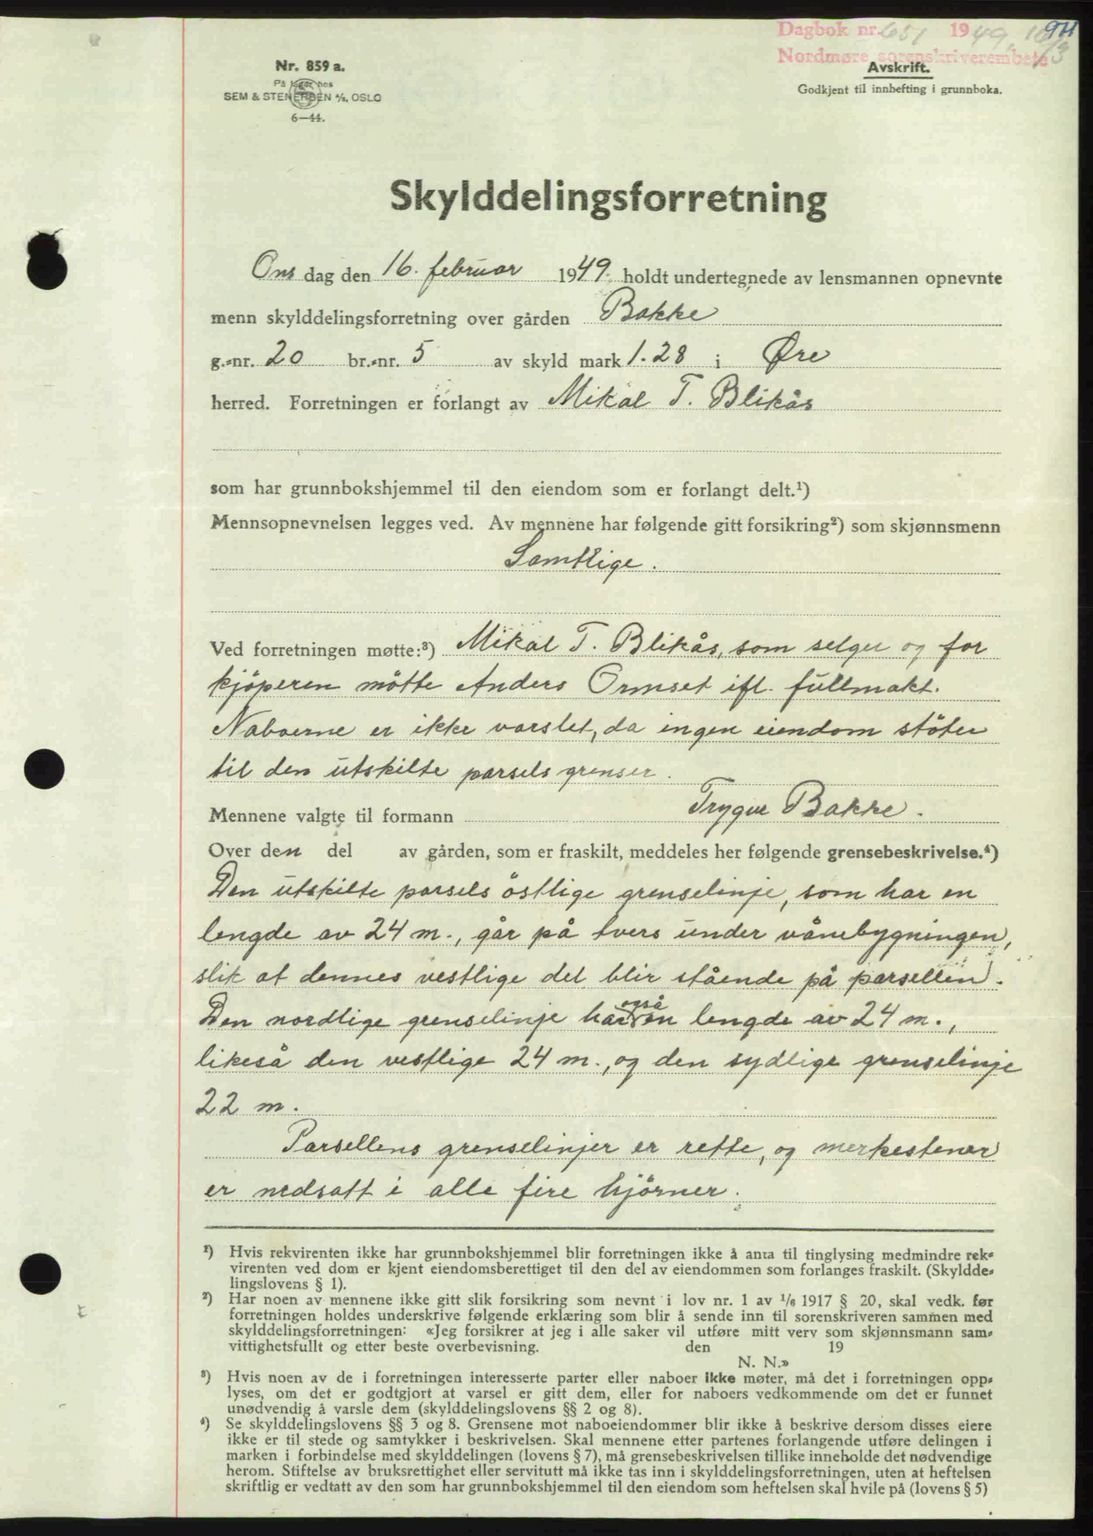 Dagbok nr. 651 1949, 16/3
Nordmøre sorenskriverembete
974
Nr. 859 a.
På lager hos
SEM & STENERSEN A/S, OSLO
6—44.
Avskrift.
Godkjent til innhefting i grunnboka.
Skylddelingsforretning
Ons dag den 16. februar 1949. holdt undertegnede av lensmannen opnevnte
menn skylddelingsforretning over gården Bakke
g.-nr. 20 br.-nr. 5 av skyld mark 1.28 i Øre
herred. Forretningen er forlangt av Mikal T. Blikås
som har grunnbokshjemmel til den eiendom som er forlangt delt.¹)
Mennsopnevnelsen legges ved. Av mennene har følgende gitt forsikring²) som skjønnsmenn
Samtlige.
Ved forretningen møtte:³) Mikal T. Blikås, som selger og for
kjöperen mötte Anders Ormset ifl. fullmakt.
Naboerne er ikke varslet, da ingen eiendom stöter
til den utskilte parsels grenser.
Mennene valgte til formann Trygve Bakke.
Over den del av gården, som er fraskilt, meddeles her følgende grensebeskrivelse.⁴)
Den utskilte parsels östlige grenselinje, som har en
lengde av 24 m., går på tvers under vånebygningen,
slik at dennes vestlige del blir stående på parsellen.
Den nordlige grenselinje har også en lengde av 24 m.,
likeså den vestlige 24 m., og den sydlige grenselinje
22 m.
Parsellens grenselinjer er rette, og merkestener
er nedsatt i alle fire hjörner.
¹) Hvis rekvirenten ikke har grunnbokshjemmel blir forretningen ikke å anta til tinglysing medmindre rek-
virenten ved dom er kjent eiendomsberettiget til den del av eiendommen som forlanges fraskilt. (Skyldde-
lingslovens § 1).
²) Har noen av mennene ikke gitt slik forsikring som nevnt i lov nr. 1 av 1/6 1917 § 20, skal vedk. før
forretningen holdes underskrive følgende erklæring som blir å sende inn til sorenskriveren sammen med
skylddelingsforretningen: «Jeg forsikrer at jeg i alle saker vil utføre mitt verv som skjønnsmann sam-
vittighetsfullt og etter beste overbevisning. den 19
N. N.»
³) Hvis noen av de i forretningen interesserte parter eller naboer ikke møter, må det i forretningen opp-
lyses, om det er godtgjort at varsel er gitt dem, eller for naboers vedkommende om det er funnet
unødvendig å varsle dem (skylddelingslovens §§ 2 og 8).
⁴) Se skylddelingslovens §§ 3 og 8. Grensene mot naboeiendommer blir ikke å beskrive dersom disses eiere
ikke er til stede og samtykker i beskrivelsen. Skal mennene etter partenes forlangende utføre delingen i
marken i forbindelse med skylddelingen (lovens § 7), må grensebeskrivelsen tillike inneholde det nødvendige
herom. Stiftelse av bruksrettighet eller servitutt må ikke tas inn i skylddelingsforretningen, uten at heftelsen
skriftlig er vedtatt av den som har grunnbokshjemmel til den eiendom som heftelsen skal hvile på (lovens § 5)